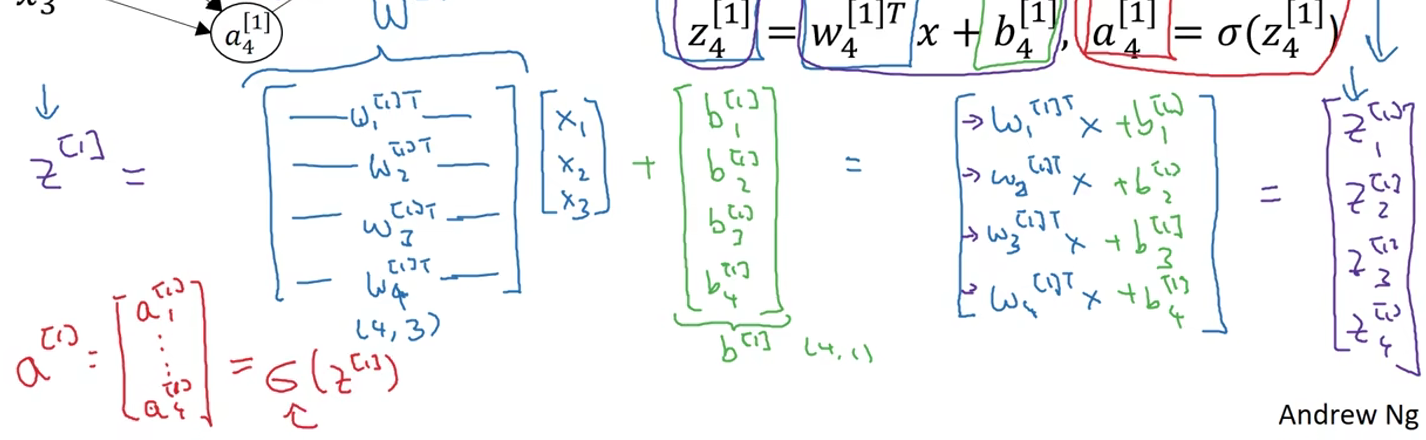 x₃
a₄^[1]
W
z₄^[1] = w₄^[1]T x + b₄^[1], a₄^[1] = σ(z₄^[1])
z^[1] = [ — w₁^[1]T — ; — w₂^[1]T — ; — w₃^[1]T — ; — w₄^[1]T — ] [ x₁ ; x₂ ; x₃ ] + [ b₁^[1] ; b₂^[1] ; b₃^[1] ; b₄^[1] ] = [ → w₁^[1]T x + b₁^[1] ; → w₂^[1]T x + b₂^[1] ; → w₃^[1]T x + b₃^[1] ; → w₄^[1]T x + b₄^[1] ] = [ z₁^[1] ; z₂^[1] ; z₃^[1] ; z₄^[1] ]
(4,3)
b^[1] (4,1)
a^[1] = [ a₁^[1] ; ⋮ ; a₄^[1] ] = σ(z^[1])
Andrew Ng